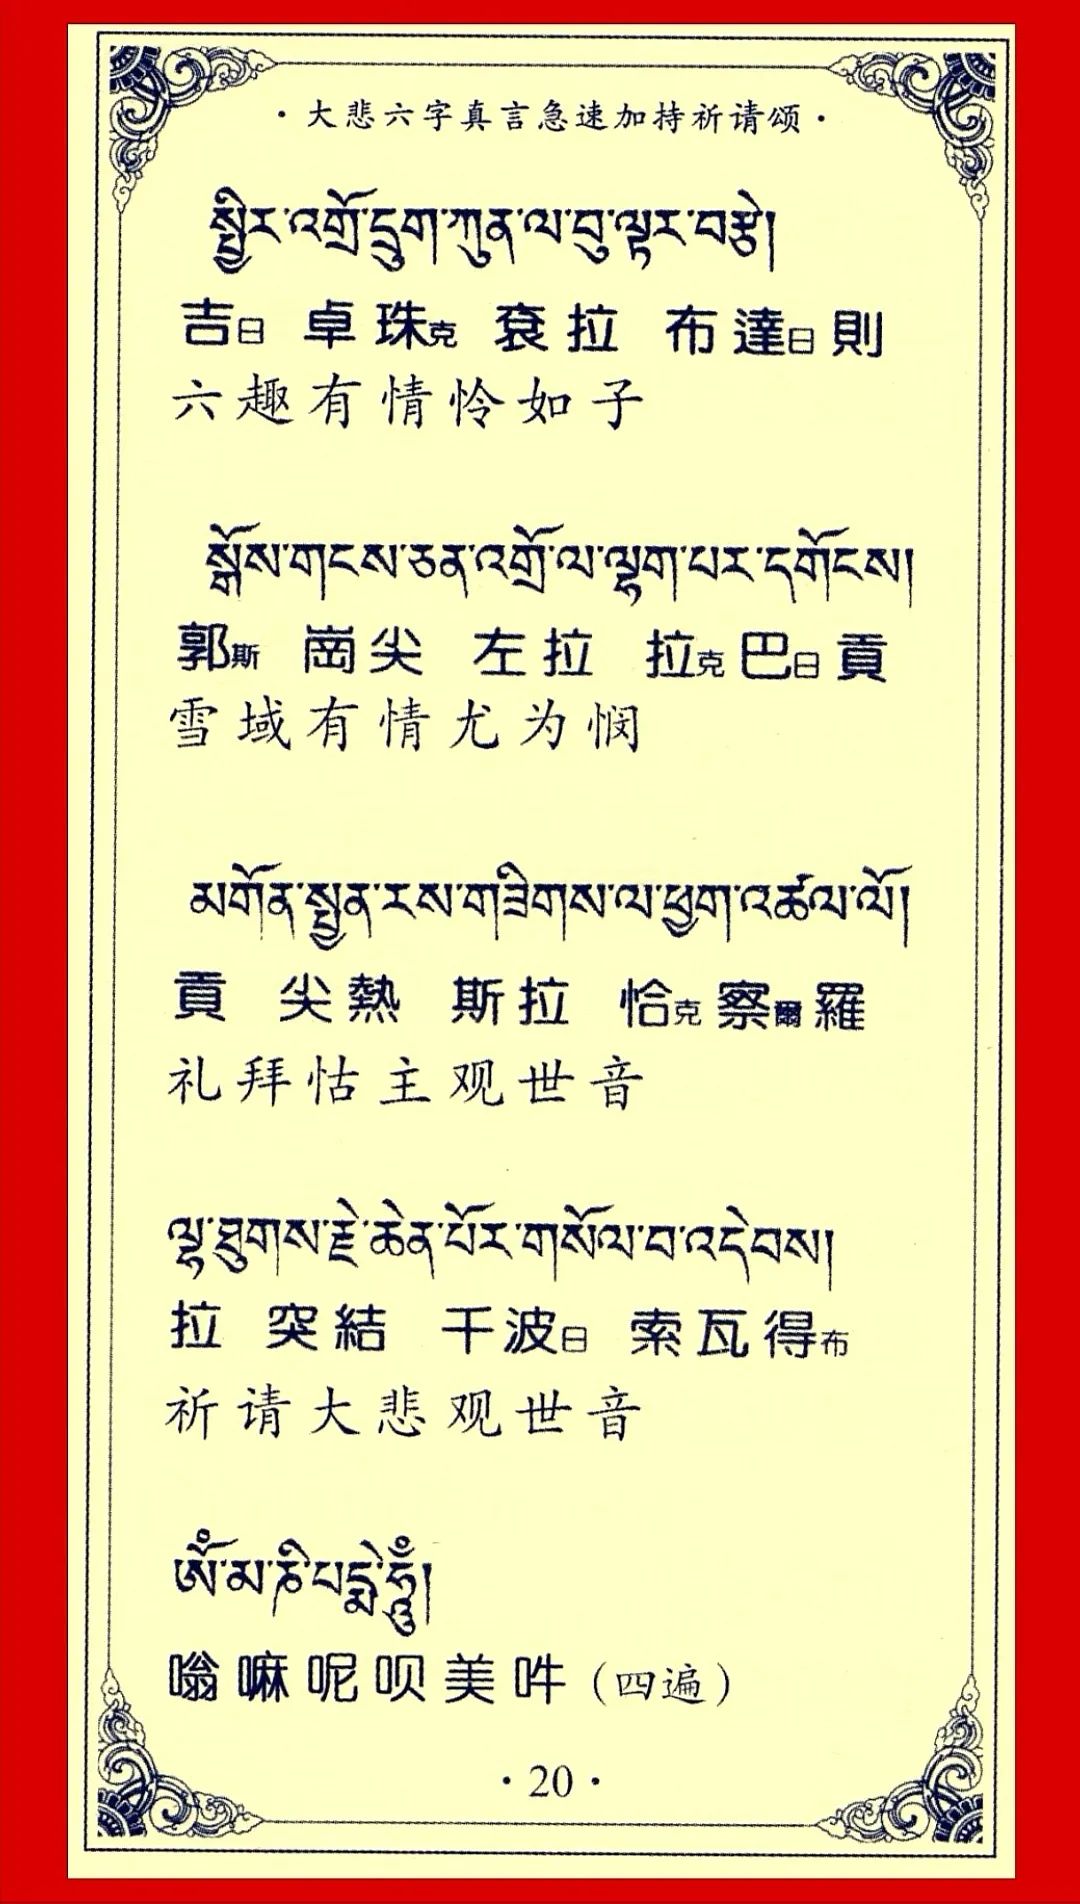 ·大悲六字真言急速加持祈请颂·
སྤྱིར་འགྲོ་དྲུག་ཀུན་ལ་བུ་ལྟར་བརྩེ།
吉日 卓珠克 袞拉 布達日則
六趣有情怜如子
སྒོས་གངས་ཅན་འགྲོ་ལ་ལྷག་པར་དགོངས།
郭斯 崗尖 左拉 拉克巴日貢
雪域有情尤为悯
མགོན་སྤྱན་རས་གཟིགས་ལ་ཕྱག་འཚལ་ལོ།
貢 尖熱 斯拉 恰克察爾羅
礼拜怙主观世音
ལྷ་ཐུགས་རྗེ་ཆེན་པོར་གསོལ་བ་འདེབས།
拉 突結 千波日 索瓦得布
祈请大悲观世音
ༀ་མ་ཎི་པདྨེ་ཧཱུྃ།
嗡嘛呢呗美吽（四遍）
·20·